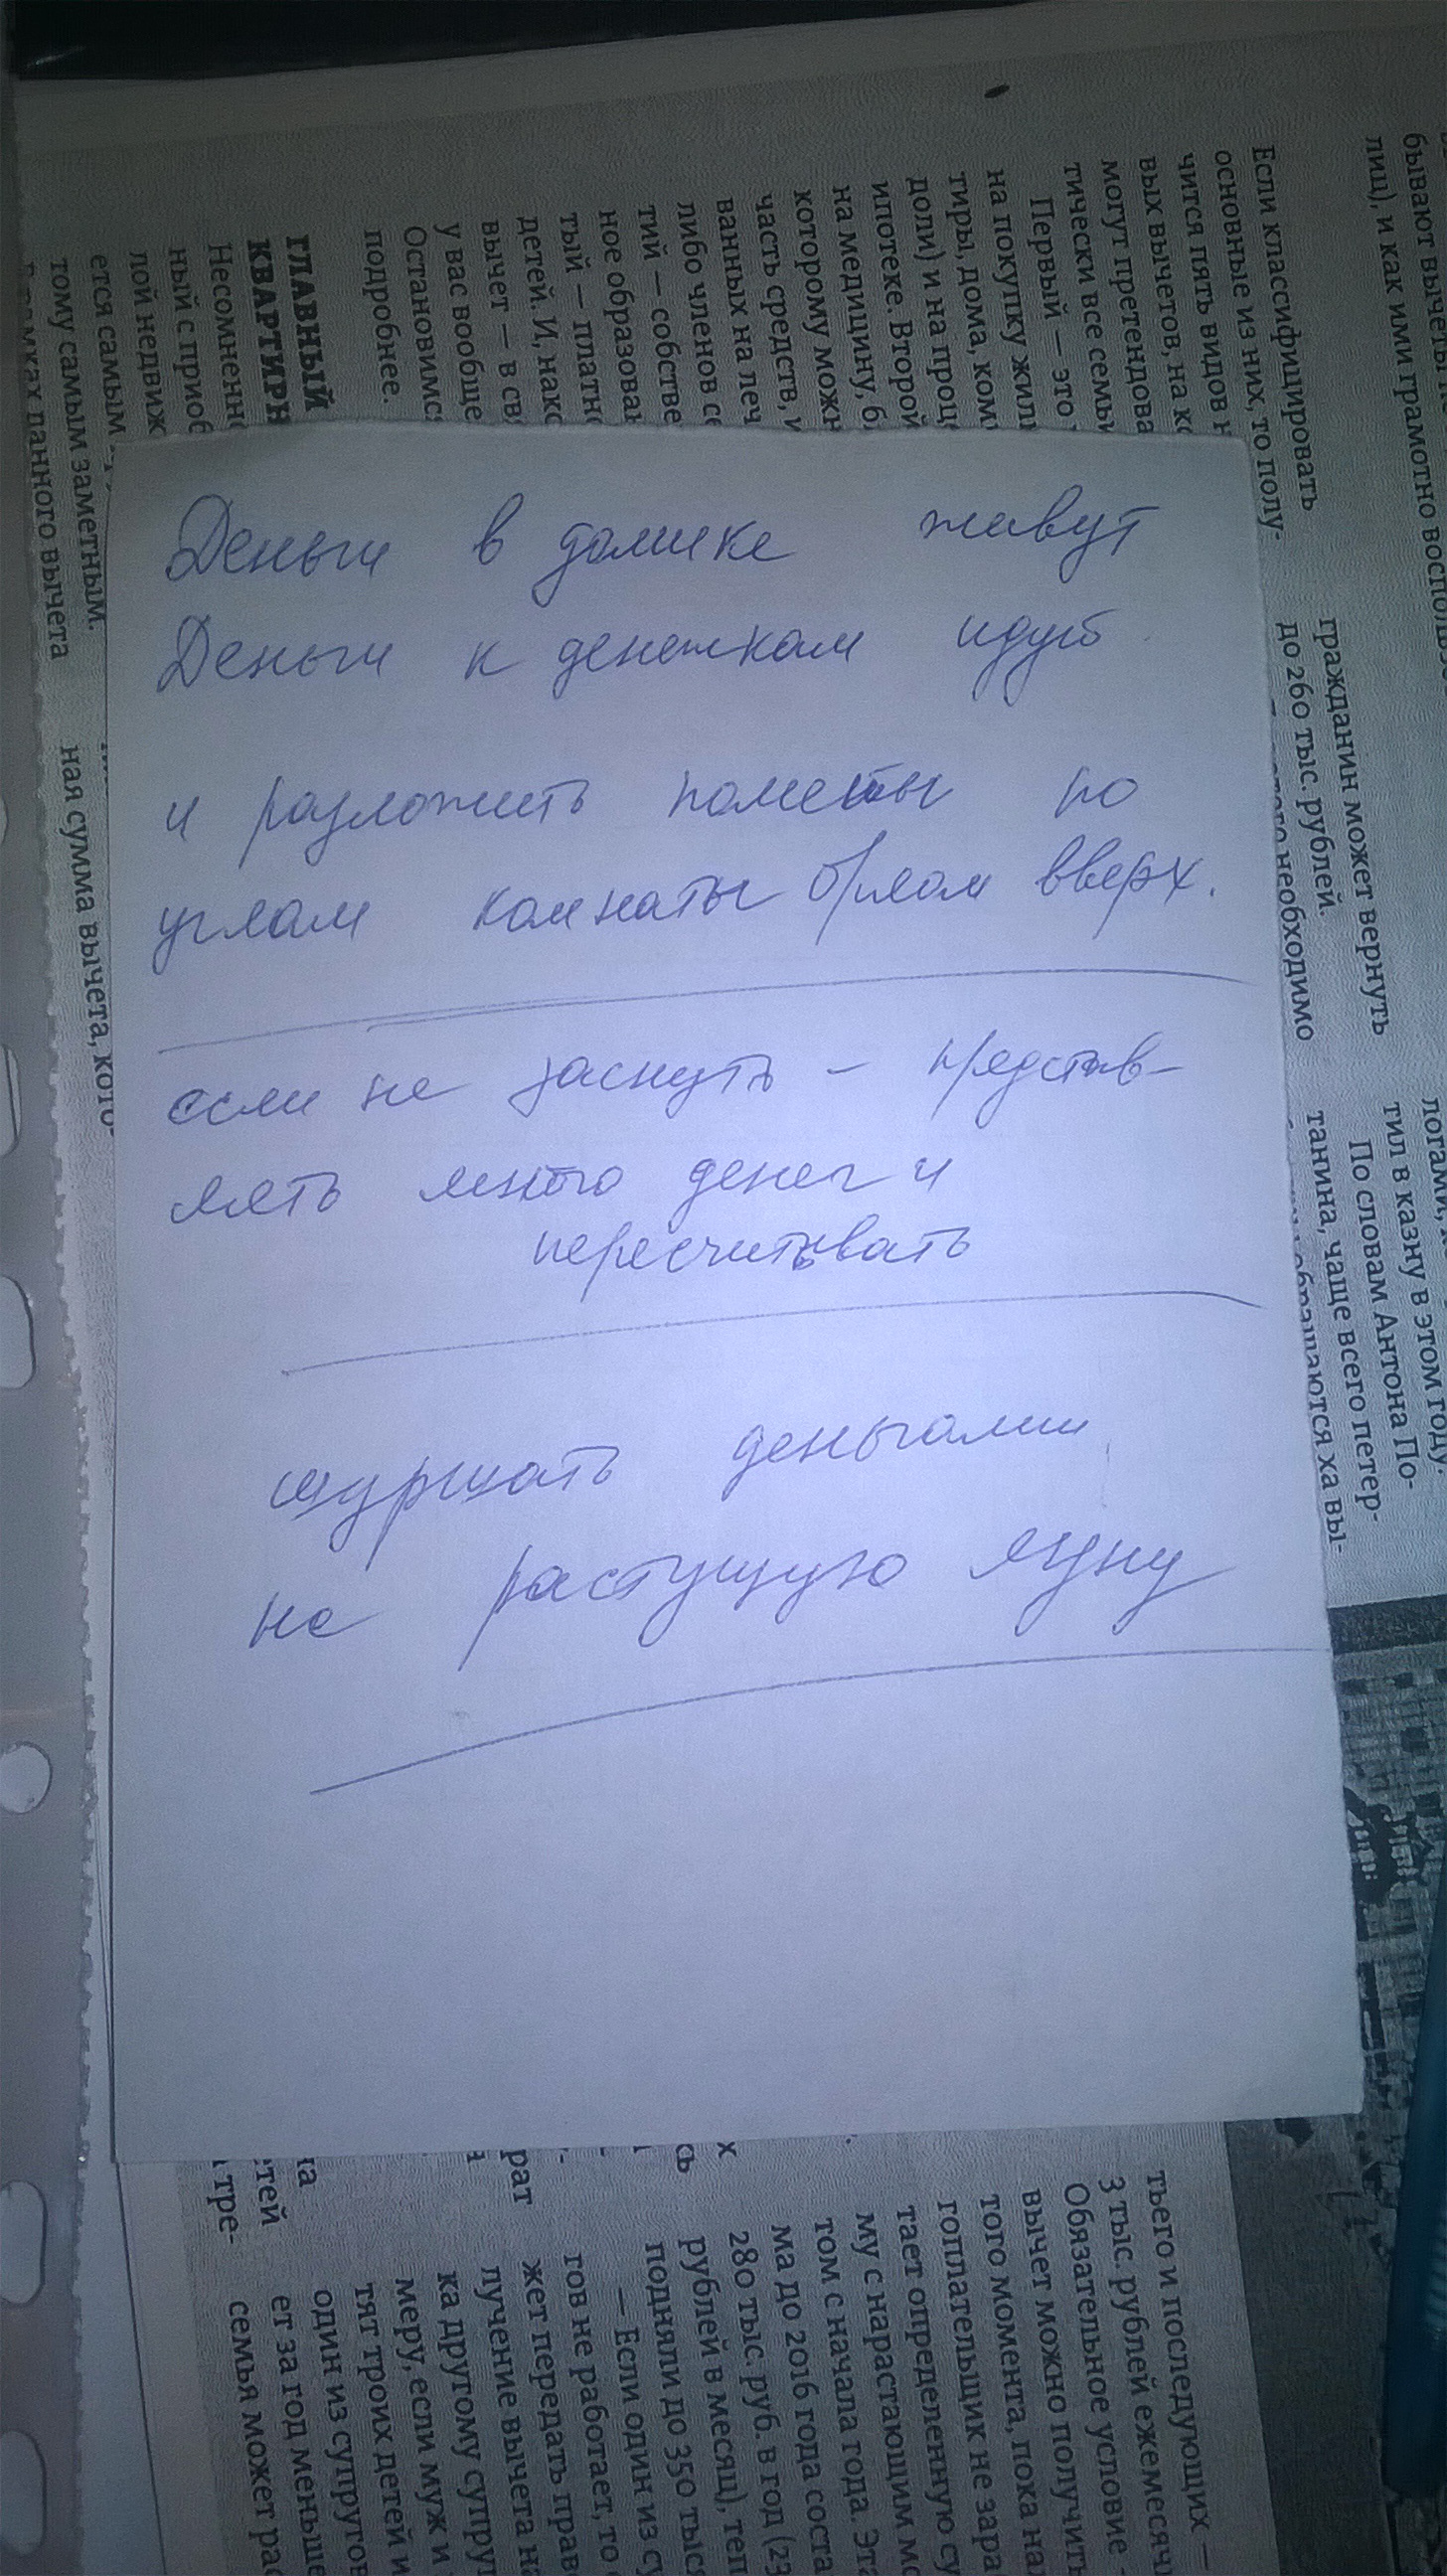 Деньги в домике живут
Деньги к денежкам идут
и разложить монеты по
углам комнаты орлом вверх.
если не заснуть – представ-
лять много денег и
пересчитывать
шуршать деньгами
на растущую луну
бывают вычеты
лиц), и как ими грамотно
Если классифицировать
основные из них, то полу-
чится пять видов
вых вычетов, на
могут претендова
тически все семьи
Первый — это
на покупку жили
тиры, дома, ком
доли) и на проц
ипотеке. Второй
на медицину, б
которому можн
часть средств, и
ванных на леч
либо членов се
тий — собстве
ное образован
тый — платн
детей. И, нако
вычет — в св
у вас вообще
Остановимс
подробнее.
ГЛАВНЫЙ
КВАРТИРН
Несомненно
ный с приоб
лой недвиж
ется самым
тому самым заметным.
данного вычета
ная сумма вычета, кото-
гражданин может вернуть
до 260 тыс. рублей.
необходимо
логами,
тил в казну в этом году.
По словам Антона По-
танина, чаще всего петер-
обращаются за вы-
тьего и последующих —
3 тыс. рублей ежемесячн
Обязательное условие
вычет можно получить
того момента, пока на
гоплательщик не зара
тает определенную су
му с нарастающим
том с начала года. Эта
ма до 2016 года соста
280 тыс. руб. в год (23
рублей в месяц), теп
подняли до 350 тыс
— Если один из су
гов не работает, то
жет передать прав
лучение вычета на
ка другому супру
меру, если муж и
тят троих детей и
один из супругов
ет за год меньше
семья может рас